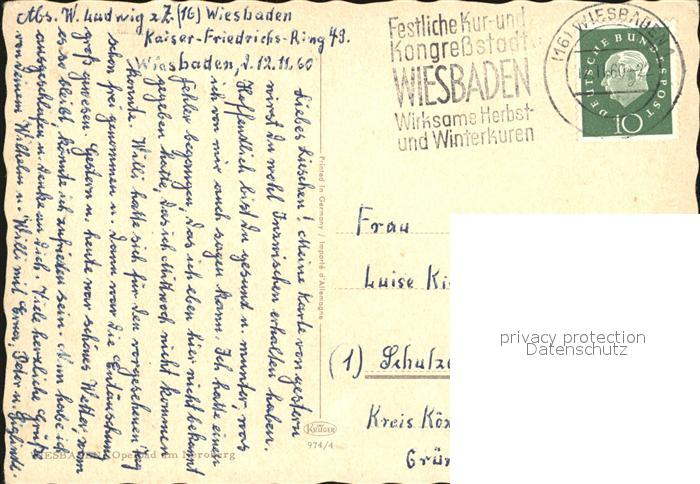 Abs. W. Ludwig z.Z. (16) Wiesbaden
Kaiser-Friedrichs-Ring 43.
Wiesbaden, d. 12.11.60
Liebes Lieschen! Meine Karte von gestern
wirst du wohl inzwischen erhalten haben.
Hoffentlich bist du gesund u. munter, was
ich von mir auch sagen kann. Ich hatte einen
Fehler begangen, das ich eben hier nicht bekannt
gegeben hatte, das ich Mittwoch nicht kommen
konnte. Willi hatte sich für den vorgesehenen Tag
schon frei genommen u. dann war die Enttäuschung
groß gewesen. Gestern u. heute war schönes Wetter, wenn
es so bleibt, könnte ich zufrieden sein. Nun habe ich
ausgeschlafen u. denke an dich. Viele herzliche Grüße
von deinem Wilhelm u. Willi mit Erna, Peter u.
Festliche Kur- und
Kongreßstadt
WIESBADEN
Wirksame Herbst-
und Winterkuren
(16) WIESBADEN
DEUTSCHE BUNDESPOST
10
Printed in Germany / Importé d'Allemagne
Frau
Luise Ki
(1) Schulze
Kreis Kö
Grün
privacy protection
Datenschutz
KRÜGER
974/4
WIESBADEN, Opelbad am Neroberg